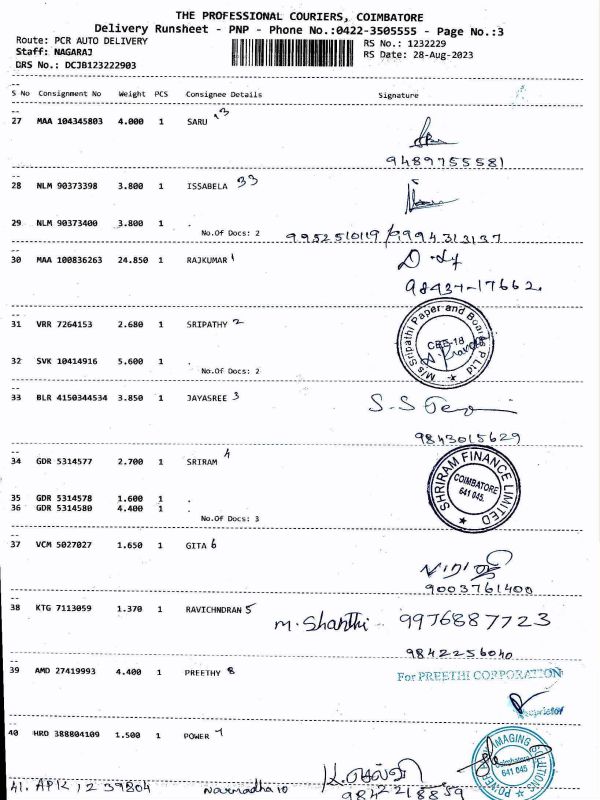 THE PROFESSIONAL COURIERS, COIMBATORE
Delivery Runsheet - PNP - Phone No.:0422-3505555 - Page No.:3
Route: PCR AUTO DELIVERY RS No.: 1232229
Staff: NAGARAJ RS Date: 28-Aug-2023
DRS No.: DCJB123222903
S No Consignment No Weight PCS Consignee Details Signature
27 MAA 104345803 4.000 1 SARU
9489755581
28 NLM 90373398 3.800 1 ISSABELA 33
29 NLM 90373400 3.800 1 .
No.Of Docs: 2 9952510119 / 9994313137
30 MAA 100836263 24.850 1 RAJKUMAR 1
98437-17662
31 VRR 7264153 2.680 1 SRIPATHY 2
M/s Sripathi Paper and Boards P Ltd
CBE-18
32 SVK 10414916 5.600 1 .
No.Of Docs: 2
33 BLR 4150344534 3.850 1 JAYASREE 3
9843015629
34 GDR 5314577 2.700 1 SRIRAM 4
SHRIRAM FINANCE LIMITED
COIMBATORE
641 045.
35 GDR 5314578 1.600 1 .
36 GDR 5314580 4.400 1 .
No.Of Docs: 3
37 VCM 5027027 1.650 1 GITA 6
9003761400
38 KTG 7113059 1.370 1 RAVICHNDRAN 5
M. Shanthi 9976887723
9842256040
39 AMD 27419993 4.400 1 PREETHY 8
For PREETHI CORPORATION
Proprietor
40 HRD 388804109 1.500 1 POWER 7
IMAGING
Coimbatore
641 045
41. APK 1239804 Narmadha 10
9842218859